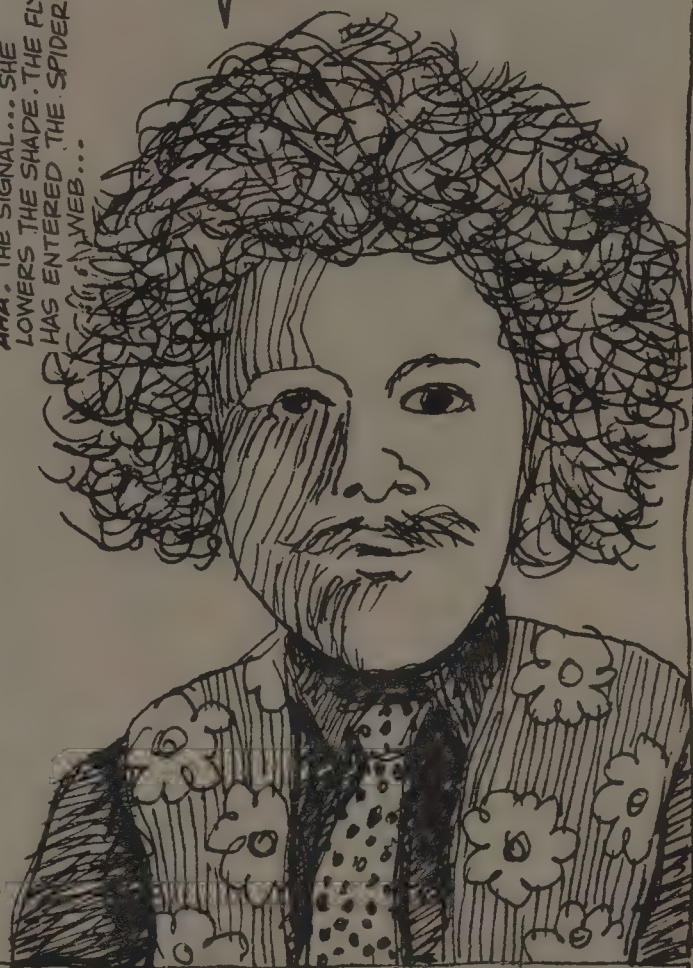 AHA. THE SIGNAL... SHE
LOWERS THE SHADE. THE FLY
HAS ENTERED THE SPIDER
WEB...